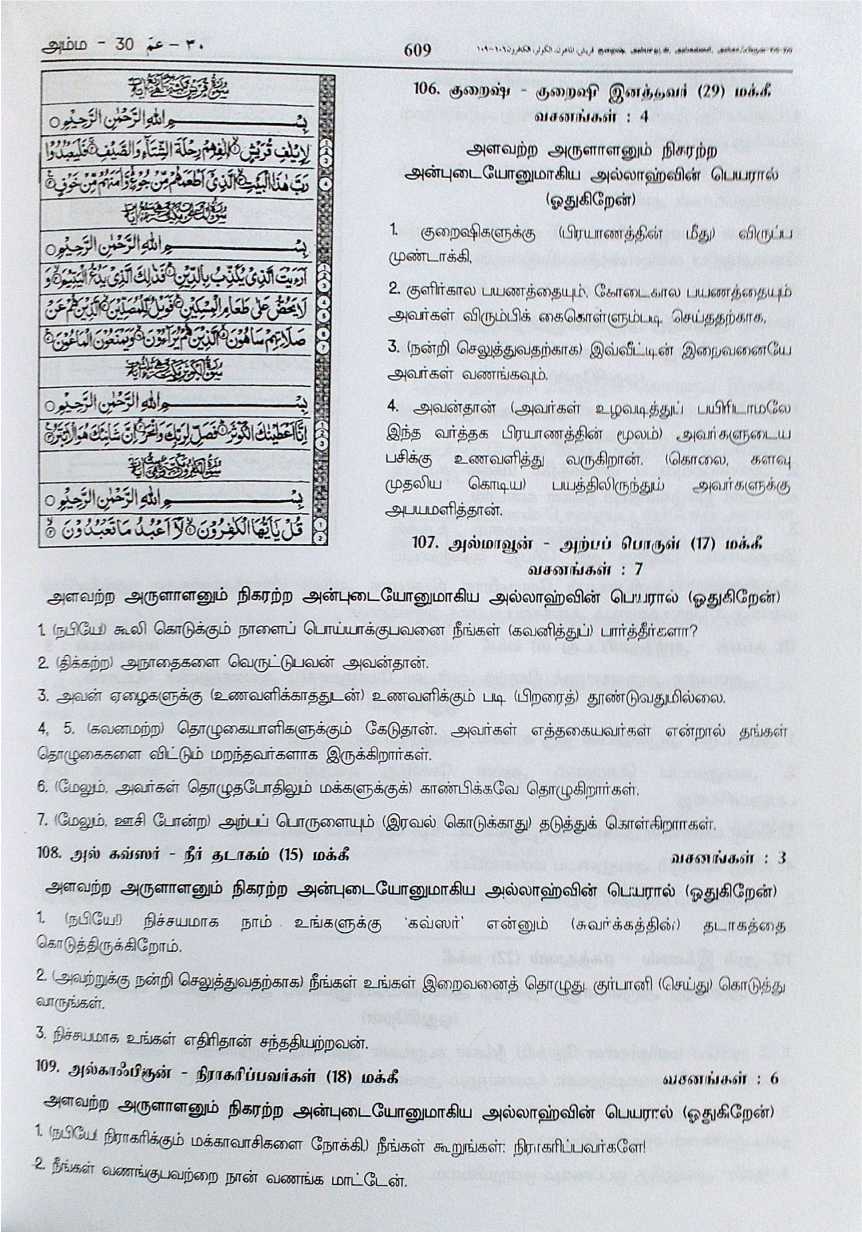 அம்ம - 30 عمّ – ٣٠
609
بِسْمِ اللهِ الرَّحْمٰنِ الرَّحِيْمِ
لِاِيْلٰفِ قُرَيْشٍ اٖلٰفِهِمْ رِحْلَةَ الشِّتَآءِ وَالصَّيْفِ فَلْيَعْبُدُوْا
رَبَّ هٰذَا الْبَيْتِ الَّذِيْٓ اَطْعَمَهُمْ مِّنْ جُوْعٍ وَّاٰمَنَهُمْ مِّنْ خَوْفٍ
بِسْمِ اللهِ الرَّحْمٰنِ الرَّحِيْمِ
اَرَءَيْتَ الَّذِيْ يُكَذِّبُ بِالدِّيْنِ فَذٰلِكَ الَّذِيْ يَدُعُّ الْيَتِيْمَ وَ
لَا يَحُضُّ عَلٰى طَعَامِ الْمِسْكِيْنِ فَوَيْلٌ لِّلْمُصَلِّيْنَ الَّذِيْنَ هُمْ عَنْ
صَلَاتِهِمْ سَاهُوْنَ الَّذِيْنَ هُمْ يُرَآءُوْنَ وَيَمْنَعُوْنَ الْمَاعُوْنَ
بِسْمِ اللهِ الرَّحْمٰنِ الرَّحِيْمِ
اِنَّآ اَعْطَيْنٰكَ الْكَوْثَرَ فَصَلِّ لِرَبِّكَ وَانْحَرْ اِنَّ شَانِئَكَ هُوَ الْاَبْتَرُ
بِسْمِ اللهِ الرَّحْمٰنِ الرَّحِيْمِ
قُلْ يٰٓاَيُّهَا الْكٰفِرُوْنَ لَآ اَعْبُدُ مَا تَعْبُدُوْنَ
106. குறைஷ் - குறைஷி இனத்தவர் (29) மக்கீ
வசனங்கள் : 4
அளவற்ற அருளாளனும் நிகரற்ற
அன்புடையோனுமாகிய அல்லாஹ்வின் பெயரால்
(ஓதுகிறேன்)
1. குறைஷிகளுக்கு (பிரயாணத்தின் மீது) விருப்ப
முண்டாக்கி,
2. குளிர்கால பயணத்தையும், கோடைகால பயணத்தையும்
அவர்கள் விரும்பிக் கைகொள்ளும்படி செய்ததற்காக,
3. (நன்றி செலுத்துவதற்காக) இவ்வீட்டின் இறைவனையே
அவர்கள் வணங்கவும்.
4. அவன்தான் (அவர்கள் உழவடித்துப் பயிரிடாமலே
இந்த வர்த்தக பிரயாணத்தின் மூலம்) அவர்களுடைய
பசிக்கு உணவளித்து வருகிறான். (கொலை, களவு
முதலிய கொடிய) பயத்திலிருந்தும் அவர்களுக்கு
அபயமளித்தான்.
107. அல்மாவூன் - அற்பப் பொருள் (17) மக்கீ
வசனங்கள் : 7
அளவற்ற அருளாளனும் நிகரற்ற அன்புடையோனுமாகிய அல்லாஹ்வின் பெயரால் (ஓதுகிறேன்)
1. (நபியே!) கூலி கொடுக்கும் நாளைப் பொய்யாக்குபவனை நீங்கள் (கவனித்துப்) பார்த்தீர்களா?
2. (திக்கற்ற) அநாதைகளை வெருட்டுபவன் அவன்தான்.
3. அவன் ஏழைகளுக்கு (உணவளிக்காததுடன்) உணவளிக்கும் படி (பிறரைத்) தூண்டுவதுமில்லை.
4, 5. (கவனமற்ற) தொழுகையாளிகளுக்கும் கேடுதான். அவர்கள் எத்தகையவர்கள் என்றால் தங்கள்
தொழுகைகளை விட்டும் மறந்தவர்களாக இருக்கிறார்கள்.
6. (மேலும், அவர்கள் தொழுதபோதிலும் மக்களுக்குக்) காண்பிக்கவே தொழுகிறார்கள்.
7. (மேலும், ஊசி போன்ற) அற்பப் பொருளையும் (இரவல் கொடுக்காது) தடுத்துக் கொள்கிறார்கள்.
108. அல் கவ்ஸர் - நீர் தடாகம் (15) மக்கீ வசனங்கள் : 3
அளவற்ற அருளாளனும் நிகரற்ற அன்புடையோனுமாகிய அல்லாஹ்வின் பெயரால் (ஓதுகிறேன்)
1. (நபியே!) நிச்சயமாக நாம் உங்களுக்கு 'கவ்ஸர்' என்னும் (சுவர்க்கத்தின்) தடாகத்தை
கொடுத்திருக்கிறோம்.
2. (அவற்றுக்கு நன்றி செலுத்துவதற்காக) நீங்கள் உங்கள் இறைவனைத் தொழுது, குர்பானி (செய்து) கொடுத்து
வாருங்கள்.
3. நிச்சயமாக உங்கள் எதிரிதான் சந்ததியற்றவன்.
109. அல்காஃபிரூன் - நிராகரிப்பவர்கள் (18) மக்கீ வசனங்கள் : 6
அளவற்ற அருளாளனும் நிகரற்ற அன்புடையோனுமாகிய அல்லாஹ்வின் பெயரால் (ஓதுகிறேன்)
1. (நபியே! நிராகரிக்கும் மக்காவாசிகளை நோக்கி) நீங்கள் கூறுங்கள்: நிராகரிப்பவர்களே!
2. நீங்கள் வணங்குபவற்றை நான் வணங்க மாட்டேன்.